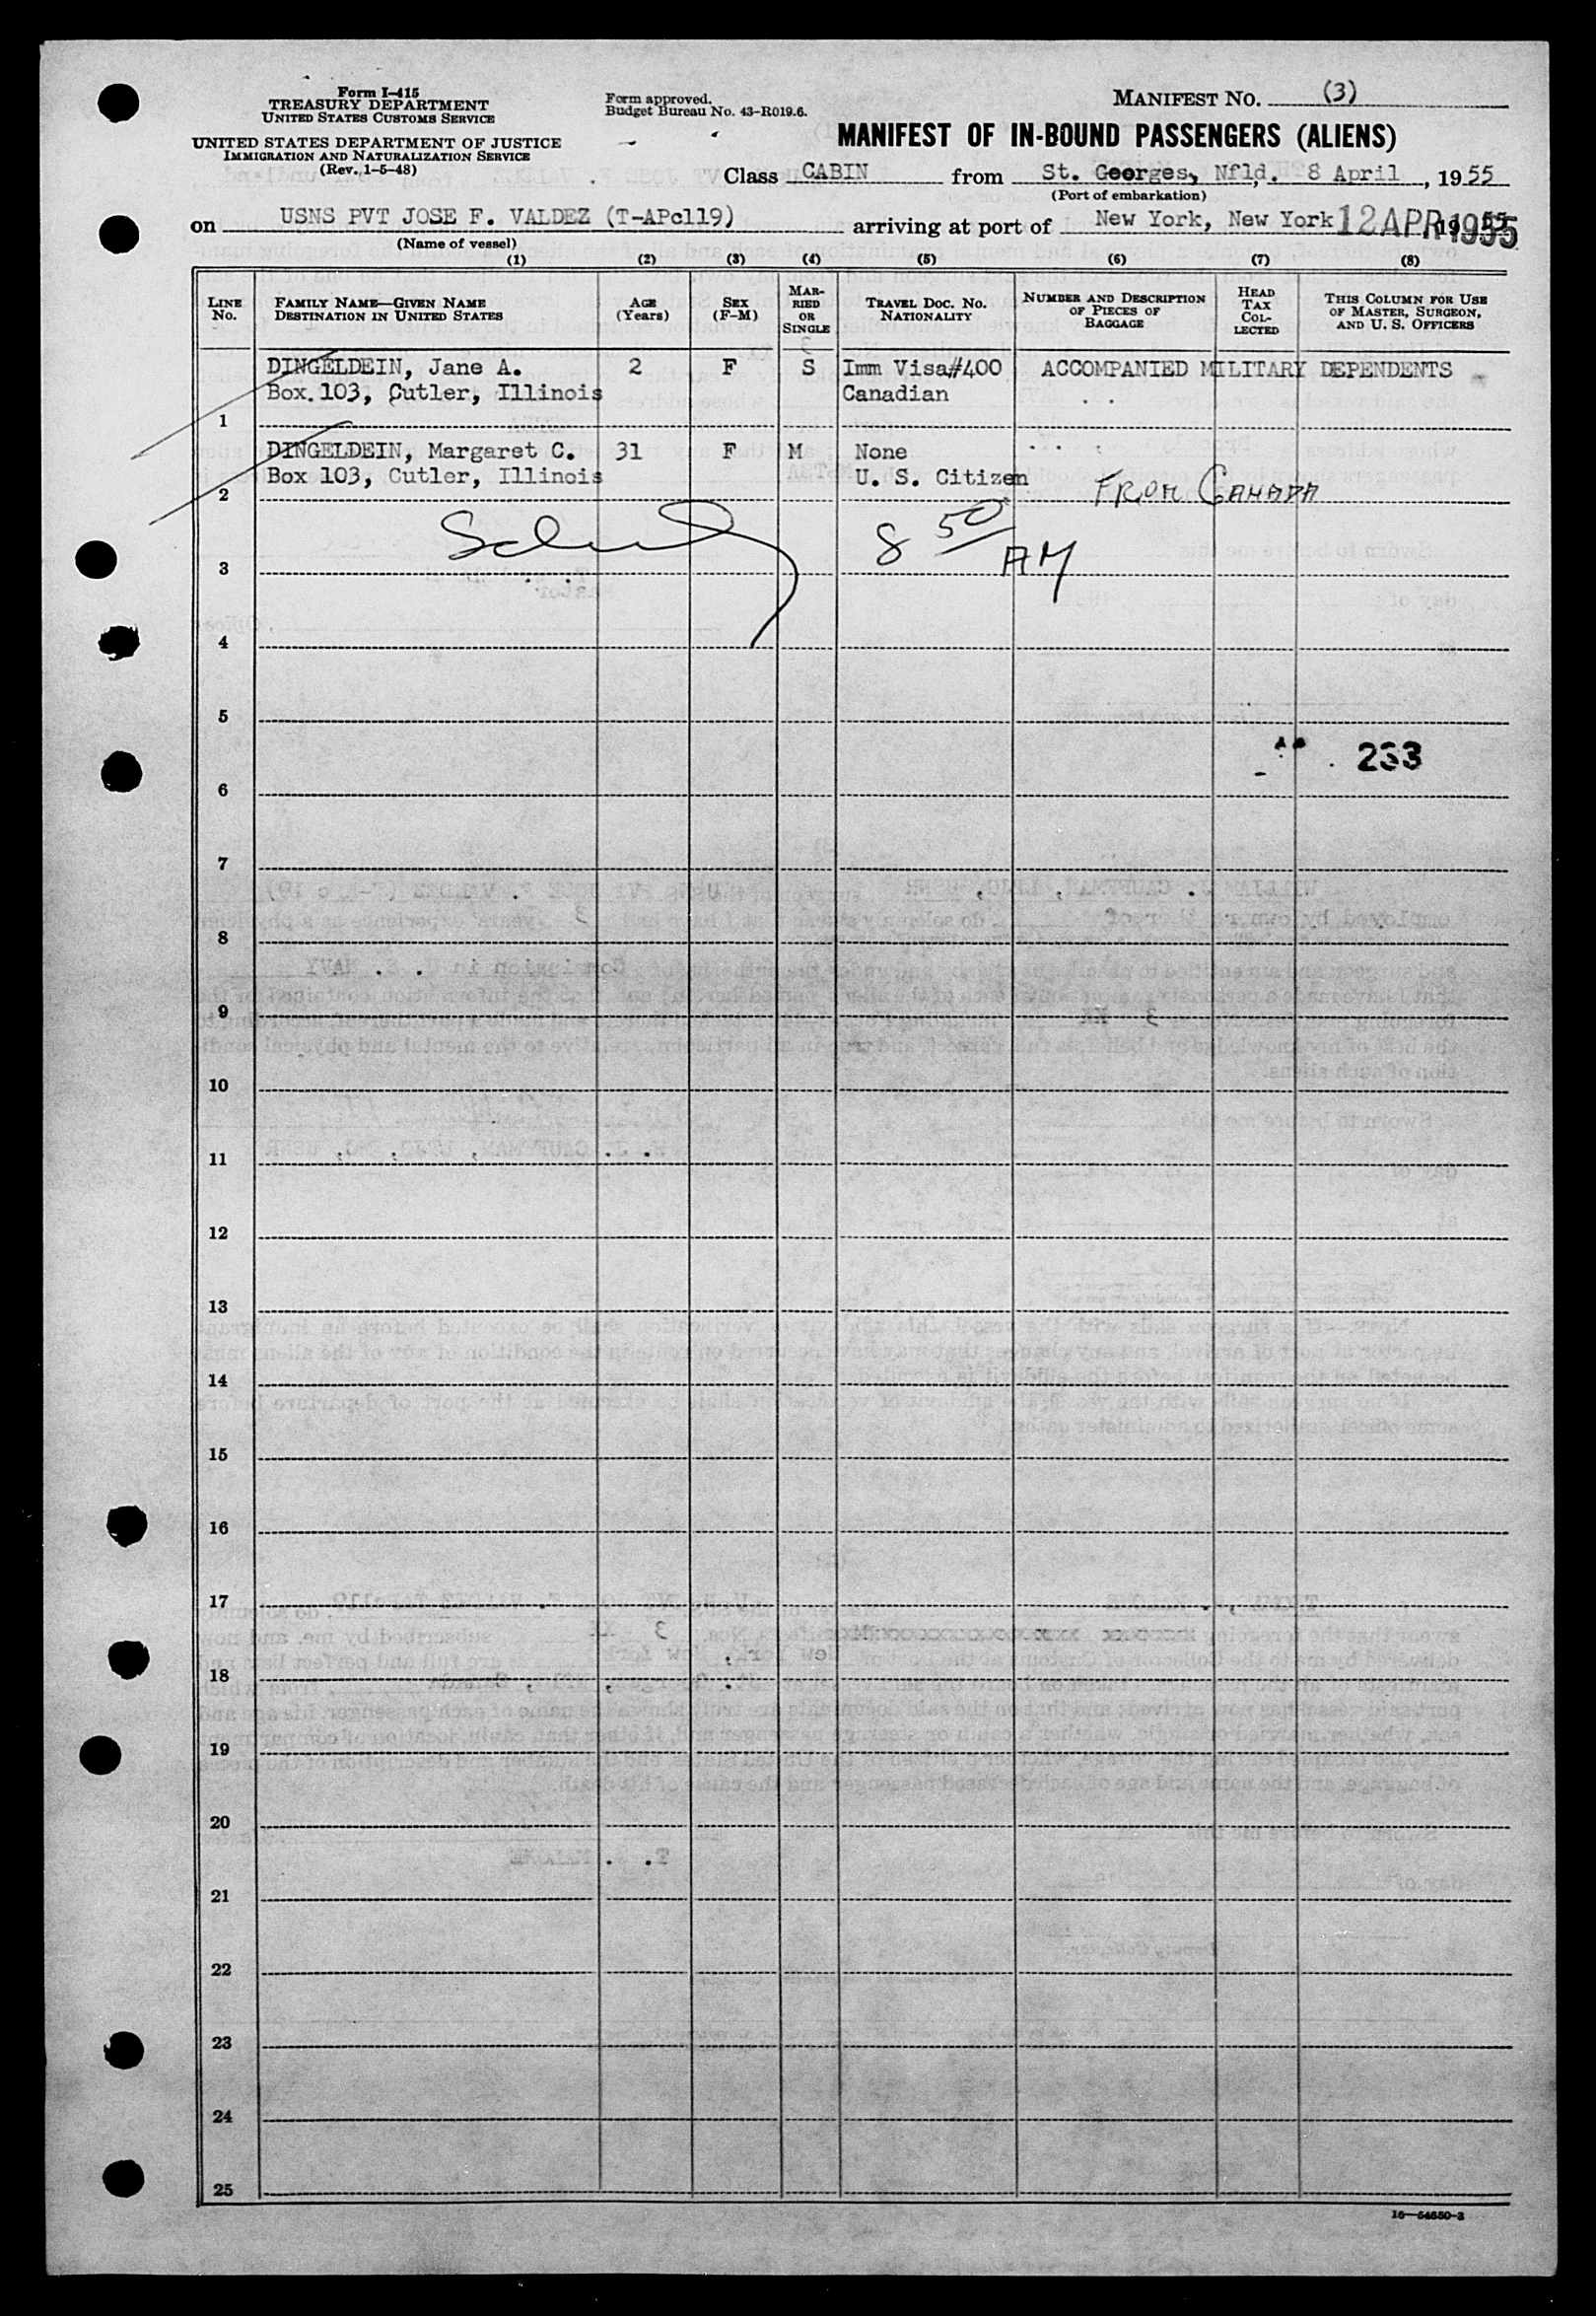 Form I-415
TREASURY DEPARTMENT
UNITED STATES CUSTOMS SERVICE
UNITED STATES DEPARTMENT OF JUSTICE
IMMIGRATION AND NATURALIZATION SERVICE
(Rev. 1-5-48)
Form approved.
Budget Bureau No. 43-R019.6.
MANIFEST NO. (3)
MANIFEST OF IN-BOUND PASSENGERS (ALIENS)
Class CABIN from St. Georges, Nfld. 8 April, 1955
(Port of embarkation)
on USNS PVT JOSE F. VALDEZ (T-APc119) arriving at port of New York, New York 12 APR 1955
(Name of vessel)
(1) (2) (3) (4) (5) (6) (7) (8)
LINE No. FAMILY NAME—GIVEN NAME DESTINATION IN UNITED STATES AGE (Years) SEX (F-M) MARRIED OR SINGLE TRAVEL DOC. NO. NATIONALITY NUMBER AND DESCRIPTION OF PIECES OF BAGGAGE HEAD TAX COLLECTED THIS COLUMN FOR USE OF MASTER, SURGEON, AND U. S. OFFICERS
DINGELDEIN, Jane A. 2 F S Imm Visa#400 ACCOMPANIED MILITARY DEPENDENTS
Box 103, Cutler, Illinois Canadian
1
DINGELDEIN, Margaret C. 31 F M None
Box 103, Cutler, Illinois U. S. Citizen FROM CANADA
2
8 50 AM
3
4
5
233
6
7
8
9
10
11
12
13
14
15
16
17
18
19
20
21
22
23
24
25
16—54650-2